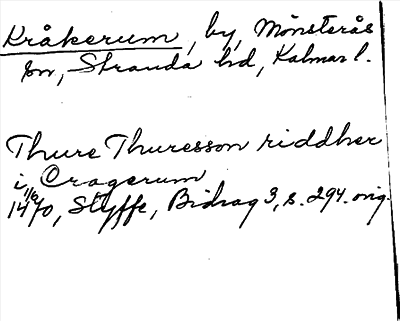 Kråkerum, by, Mönsterås
sn, Stranda hd, Kalmar l.
Thure Thuresson riddher
i Cragerum
11/6 1470, Styffe, Bidrag 3, s. 294. orig.